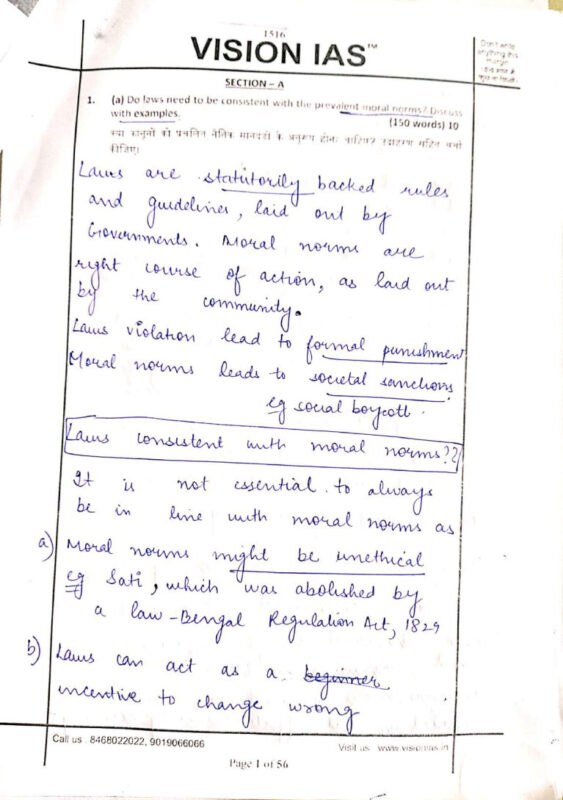 1516
VISION IAS™
Don't write
anything this
margin
SECTION – A
1. (a) Do laws need to be consistent with the prevalent moral norms? Discuss
with examples. (150 words) 10
क्या कानूनों को प्रचलित नैतिक मानदंडों के अनुरूप होना चाहिए? उदाहरण सहित चर्चा
कीजिए।
Laws are statutorily backed rules
and guidelines, laid out by
Governments. Moral norms are
right course of action, as laid out
by the community.
Laws violation lead to formal punishment
Moral norms leads to societal sanctions
eg social boycott.
Laws consistent with moral norms??
It is not essential to always
be in line with moral norms as
a) Moral norms might be unethical
eg Sati, which was abolished by
a law – Bengal Regulation Act, 1829
b) Laws can act as a beginner
incentive to change wrong
Call us : 8468022022, 9019066066
Visit us : www.visionias.in
Page 1 of 56